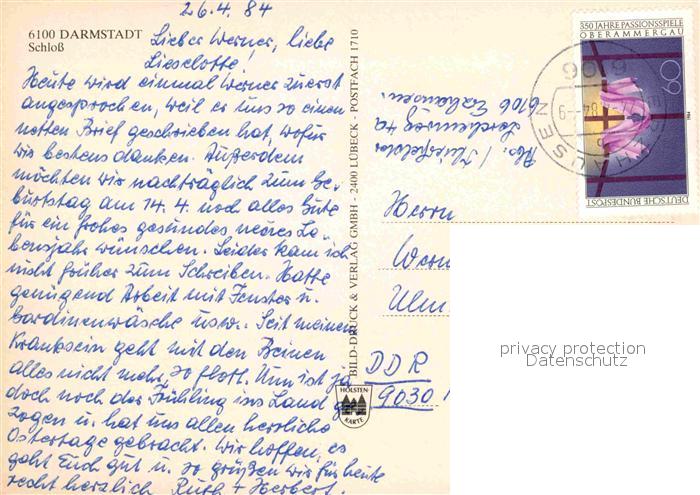 26.4.84
6100 DARMSTADT
Schloß
Lieber Werner, liebe
Lieselotte!
Heute wird einmal Werner zuerst
angesprochen, weil er uns so einen
netten Brief geschrieben hat, wofür
wir bestens danken. Außerdem
möchten wir nachträglich zum Ge-
burtstag am 14.4. noch alles Gute
für ein frohes gesundes neues Le-
bensjahr wünschen. Leider kam ich
nicht früher zum Schreiben. Hatte
genügend Arbeit mit Fenster u.
Gardinenwäsche usw. Seit meinem
Kranksein geht mit den Beinen
alles nicht mehr so flott. Nun ist ja
doch noch der Frühling ins Land ge-
zogen u. hat uns allen herrliche
Ostertage gebracht. Wir hoffen, es
geht Euch gut u. so grüßen wir für heute
recht herzlich Ruth + Herbert.
BILD-DRUCK & VERLAG GMBH - 2400 LÜBECK - POSTFACH 1710
HOLSTEN
KARTE
Abs.
6106 Erzhausen
350 JAHRE PASSIONSSPIELE
OBERAMMERGAU
60
DEUTSCHE BUNDESPOST
ERZHAUSEN
6106
Herrn
Wern
Ulm
DDR
9030
privacy protection
Datenschutz